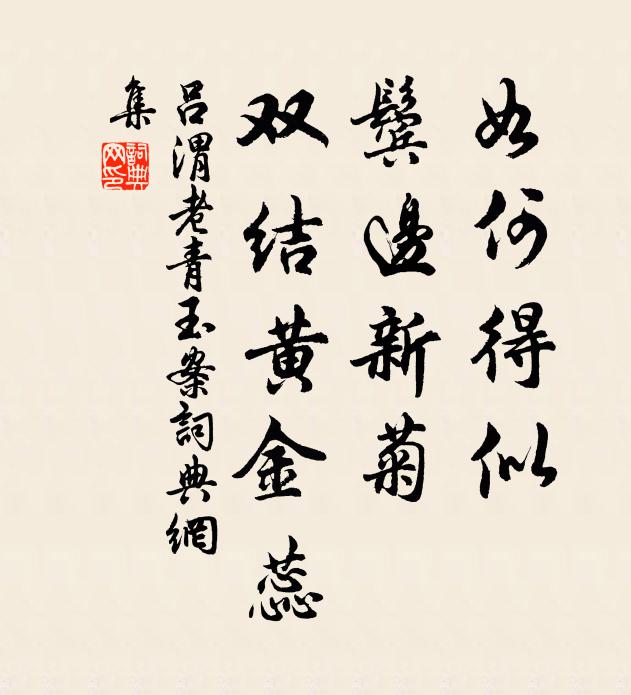 如何得似
鬓邊新菊
双结黄金蕊
吕渭老青玉案詞典網
集
詞典
网印